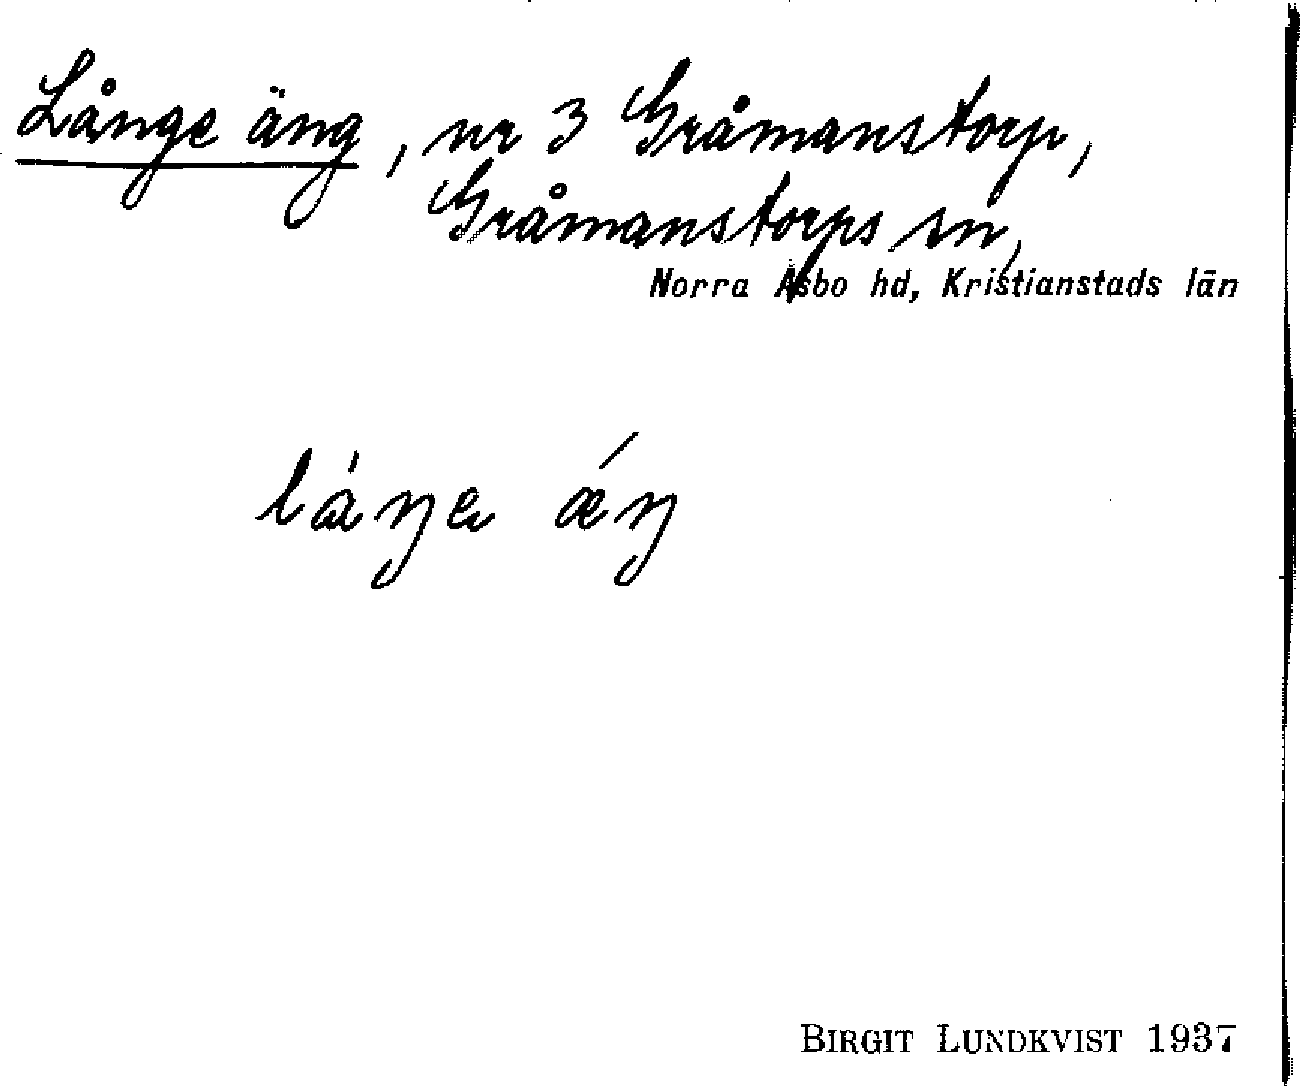 Långe äng, nr 3 Gråmanstorp,
Gråmanstorps sn,
Norra Åsbo hd, Kristianstads län
låŋe ǽŋ
BIRGIT LUNDKVIST 1937